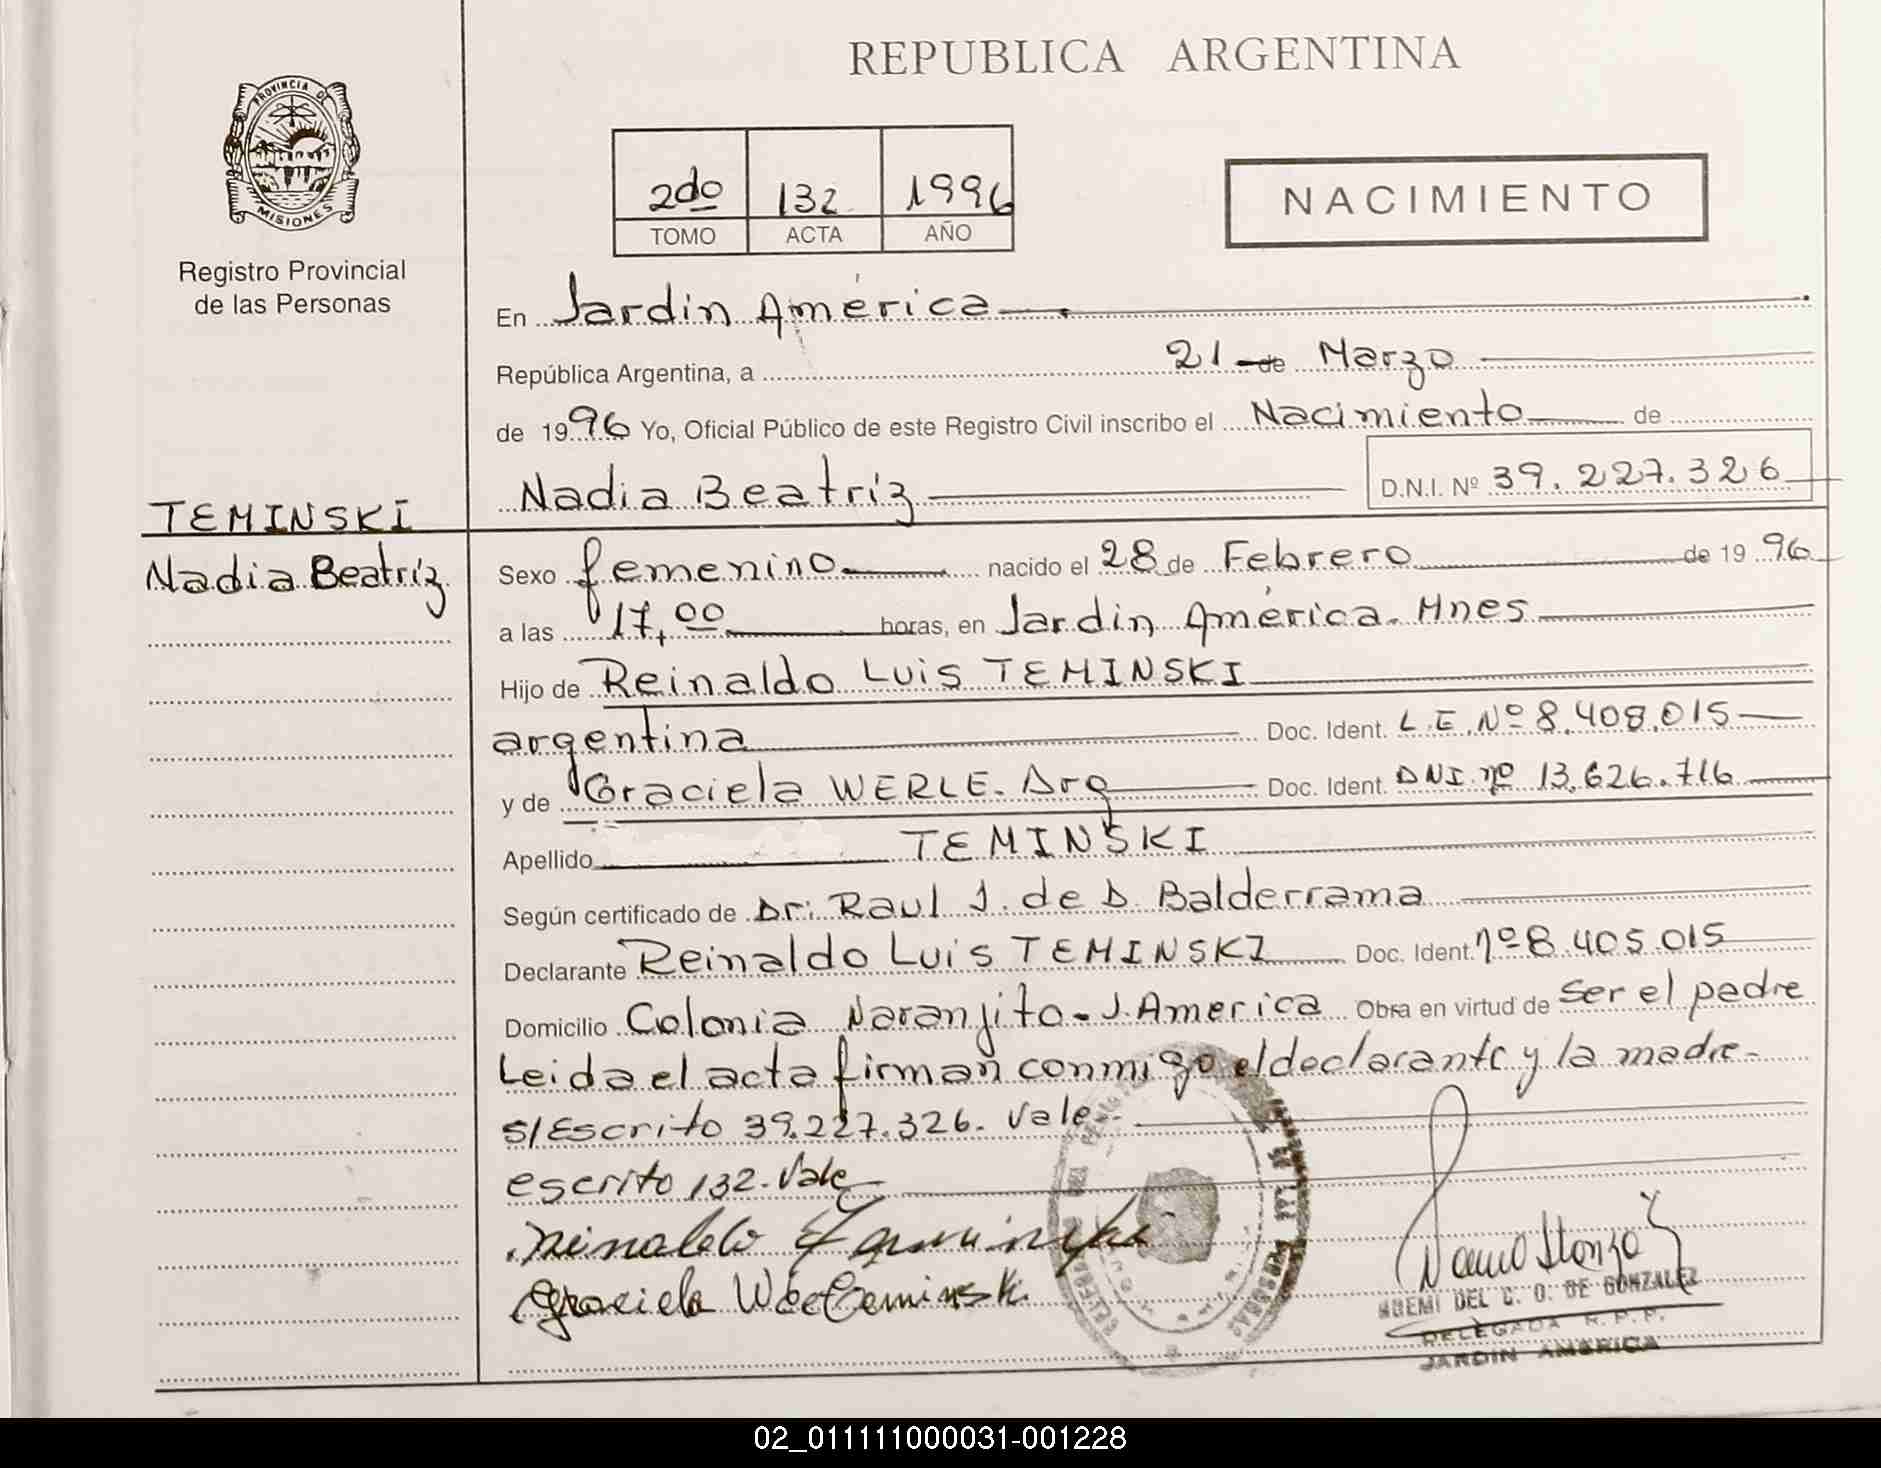 REPUBLICA ARGENTINA
PROVINCIA DE
MISIONES
Registro Provincial
de las Personas
2do 132 1996
TOMO ACTA AÑO
NACIMIENTO
En Jardin América
República Argentina, a 21 de Marzo
de 1996 Yo, Oficial Público de este Registro Civil inscribo el Nacimiento de
Nadia Beatriz D.N.I. Nº 39.227.326
TEMINSKI
Nadia Beatriz
Sexo femenino nacido el 28 de Febrero de 1996
a las 17,00 horas, en Jardin América. Mnes
Hijo de Reinaldo Luis TEMINSKI
argentina Doc. Ident. L.E. Nº 8.408.015
y de Graciela WERLE. Arg Doc. Ident. DNI. nº 13.626.716
Apellido TEMINSKI
Según certificado de Dr: Raul J. de D. Balderrama
Declarante Reinaldo Luis TEMINSKI Doc. Ident. nº 8.405.015
Domicilio Colonia Naranjito - J. America Obra en virtud de ser el padre
Leida el acta firman conmigo el declarante y la madre-
s/Escrito 39.227.326. Vale-
escrito 132. Vale
Graciela W de Teminski
NOEMI DEL C. O. DE GONZALEZ
DELEGADA R.P.P.
JARDIN AMERICA
02_011111000031-001228